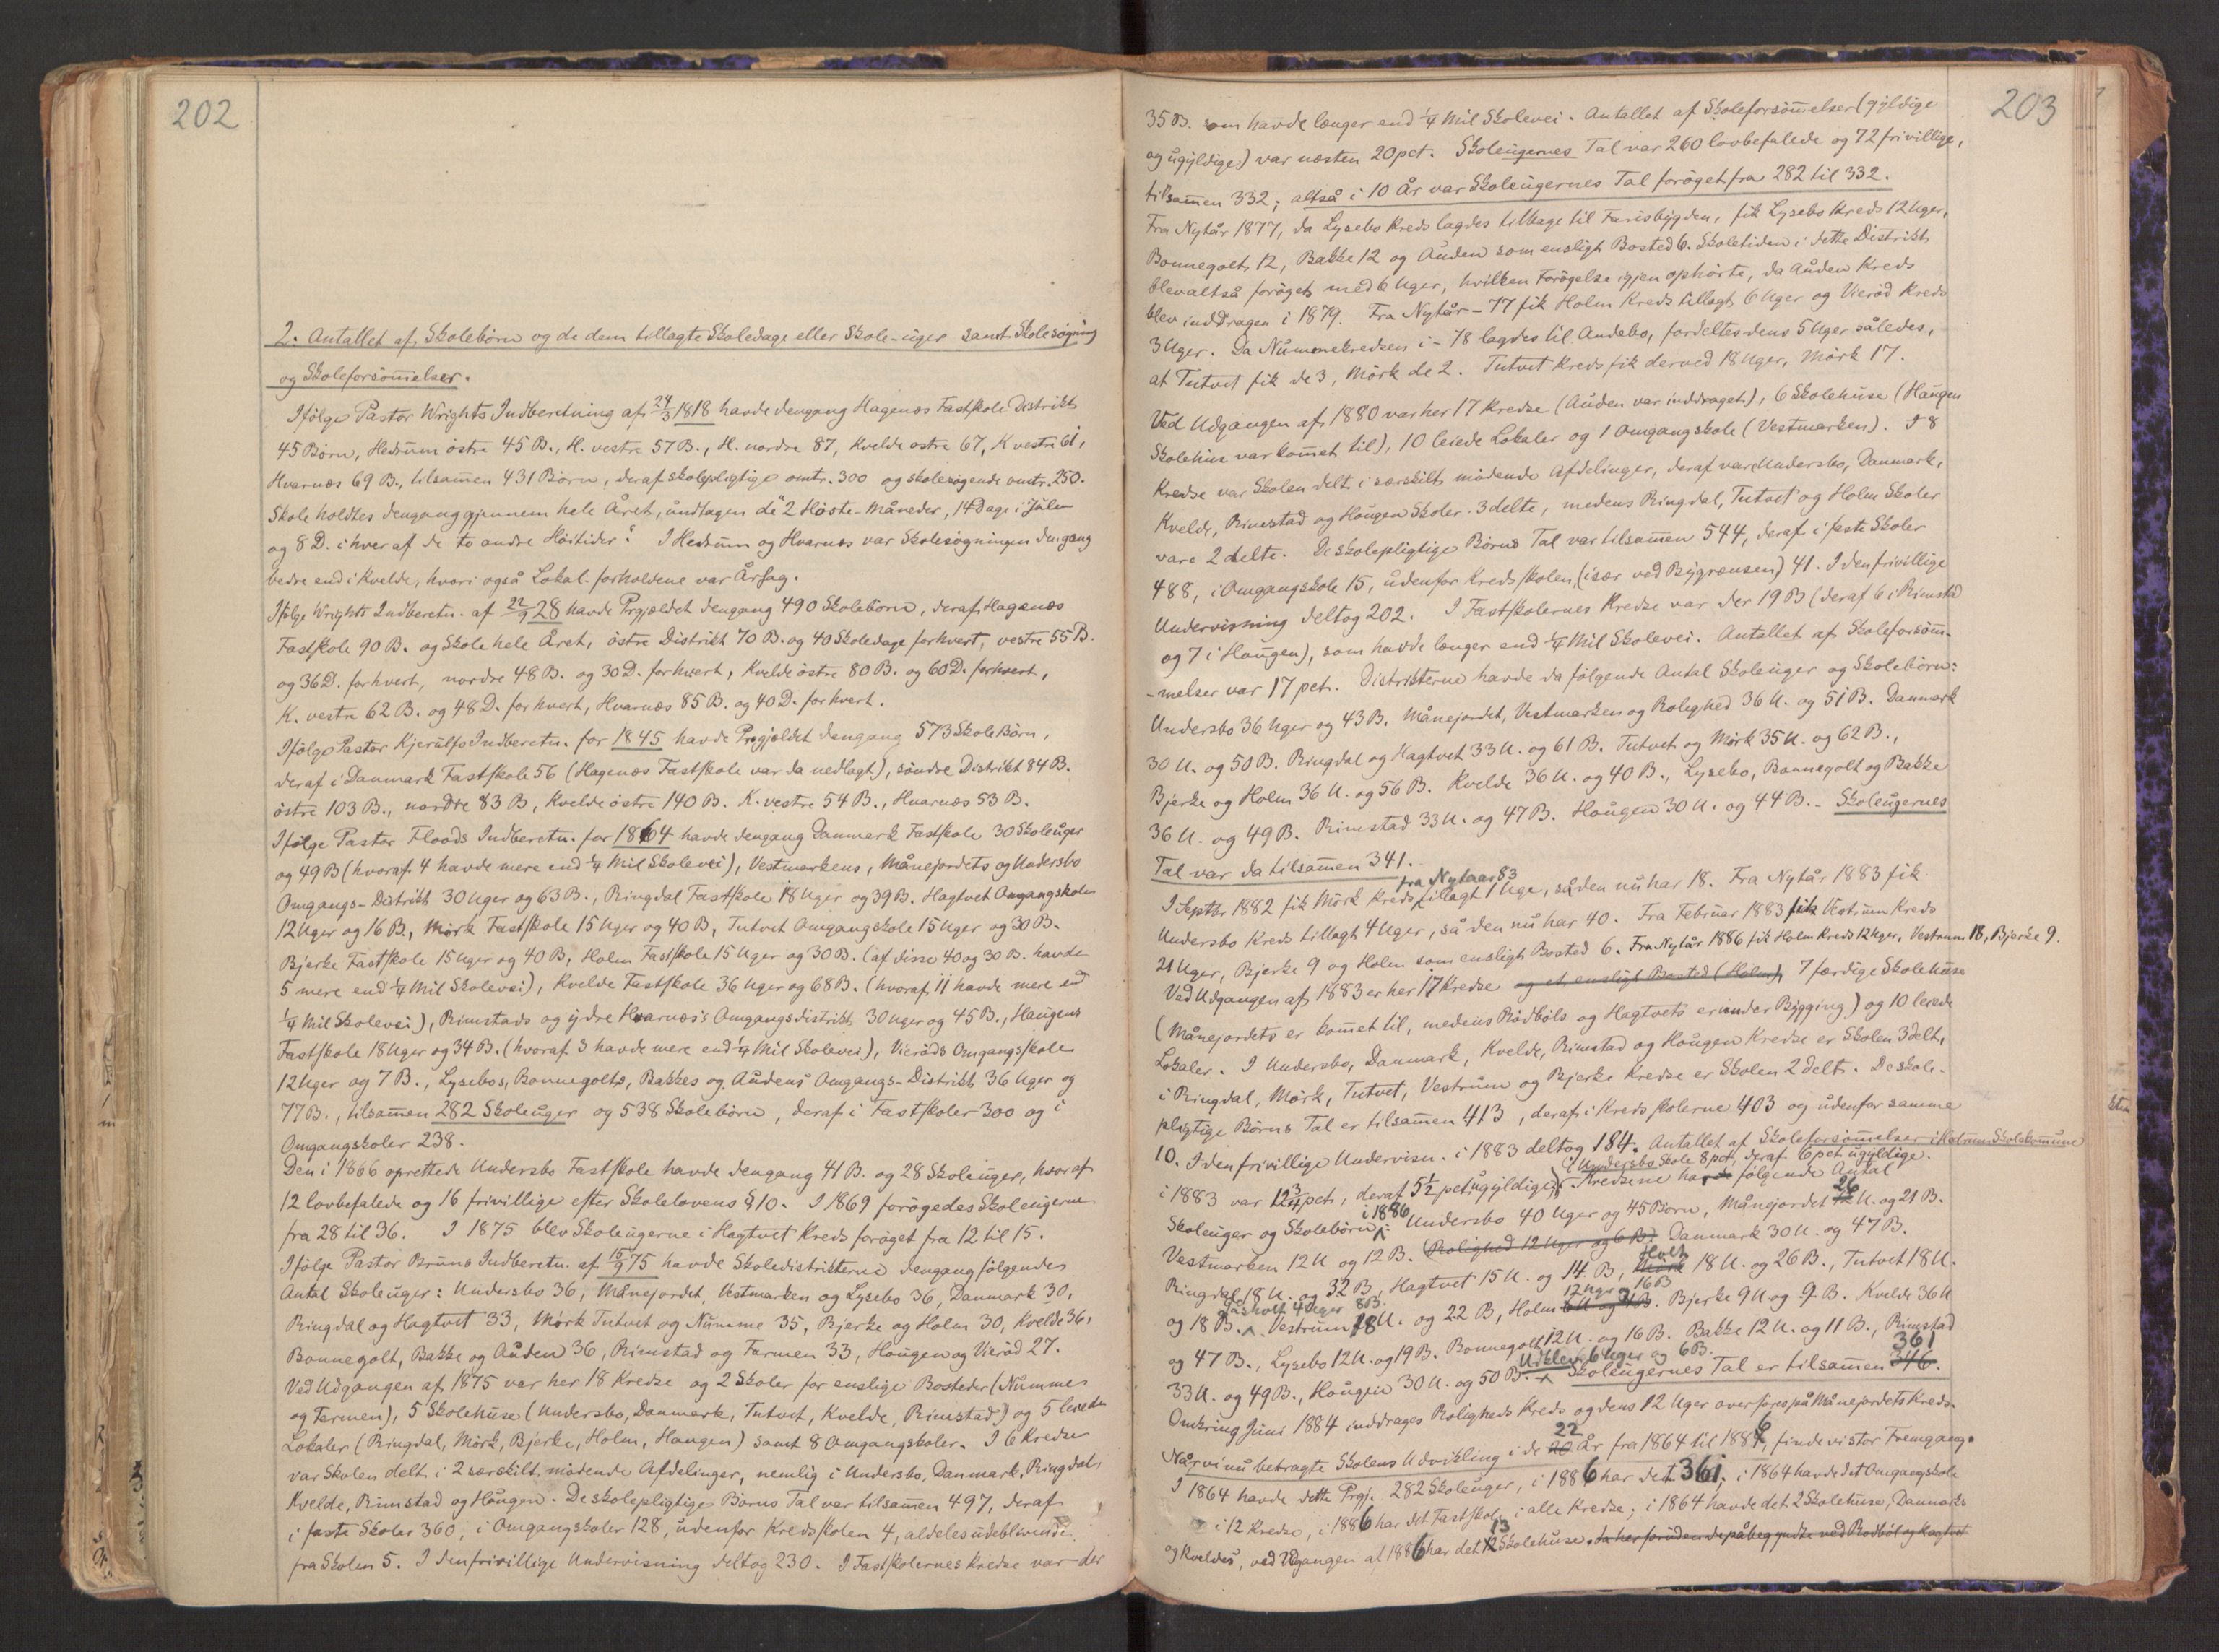 202
2. Antallet af Skolebörn og de dem tillagte Skoledage eller Skole-uger samt Skolesøgning
og Skoleforsöm̅elser.
Ifölge Pastor Wrights Indberetning af 24/3 1818 havde dengang Hagenæs Fastskole Distrikt
45 Börn, Hedrum östre 45 B., H. vestre 57 B., H. nordre 87, Kvelde østre 67, K vestre 61,
Hvarnæs 69 B., tilsam̅en 431 Börn, deraf skolepligtige omtr. 300 og skolesøgende omtr. 250.
Skole holdtes dengang gjennem hele Året, undtagen de 2 Höste-Måneder, 14 Dage i Julen
og 8 D. i hver af de to andre Höitider. I Hedrum og Hvarnæs var Skolesøgningen dengang
bedre end i Kvelde, hvori også Lokal-forholdene var Årsag.
Ifölge Wrights Indberetn. af 22/9 28 havde Prgjældet dengang 490 Skolebörn, deraf Hagenæs
Fastskole 90 B. og Skole hele Året, östre Distrikt 70 B. og 40 Skoledage for hvert, vestre 55 B.
og 36 D. for hvert, nordre 48 B. og 30 D. for hvert, Kvelde östre 80 B. og 60 D. for hvert,
K. vestre 62 B. og 48 D. for hvert, Hvarnæs 85 B. og 40 D. for hvert.
Ifölge Pastor Kjerulfs Indberetn. for 1845 havde Prgjældet dengang 573 Skole Börn,
deraf i Danmark Fastskole 56 (Hagenæs Fastskole var da nedlagt), söndre Distrikt 84 B.
östre 103 B., nordre 83 B, Kvelde östre 140 B. K. vestre 54 B., Hvarnæs 53 B.
Ifölge Pastor Floods Indberetn. for 1864 havde dengang Danmark Fastskole 30 Skoleuger
og 49 B (hvoraf 4 havde mere end ¼ Mil Skolevei), Vestmarkens, Månejordets og Undersbo
Omgangs-Distrikt 30 Uger og 63 B., Ringdal Fastskole 18 Uger og 39 B. Hagtvet Omgangskole
12 Uger og 16 B., Mörk Fastskole 15 Uger og 40 B, Tutvet Omgangskole 15 Uger og 30 B.
Bjerke Fastskole 15 Uger og 40 B, Holm Fastskole 15 Uger og 30 B. (af disse 40 og 30 B. havde
5 mere end ¼ Mil Skolevei), Kvelde Fastskole 36 Uger og 68 B. (hvoraf 11 havde mere end
¼ Mil Skolevei), Rimstads og ydre Hvarnæs's Omgangsdistrikt 30 Uger og 45 B., Haugens
Fastskole 18 Uger og 34 B. (hvoraf 3 havde mere end ¼ Mil Skolevei), Vieröds Omgangsskole
12 Uger og 7 B., Lysebos, Bonnegolts, Bakkes og Audens Omgangs-Distrikt 36 Uger og
77 B., tilsam̅en 282 Skoleuger og 538 Skolebörn, deraf i Fastskoler 300 og i
Omgangskoler 238.
Den i 1866 oprettede Undersbo Fastskole havde dengang 41 B. og 28 Skoleuger, hvoraf
12 lovbefalede og 16 frivillige efter Skolelovens § 10. I 1869 forögedes Skoleugerne
fra 28 til 36. I 1875 blev Skoleugerne i Hagtvet Kreds foröget fra 12 til 15.
Ifölge Pastor Bruns Indberetn. af 15/9 75 havde Skoledistrikterne dengang følgende
Antal Skoleuger: Undersbo 36, Månejordet, Vestmarken og Lysebo 36, Danmark 30,
Ringdal og Hagtvet 33, Mörk Tutvet og Numme 35, Bjerke og Holm 30, Kvelde 36,
Bonnegolt, Bakke og Auden 36, Rimstad og Farmen 33, Hougen og Vieröd 27.
Ved Udgangen af 1875 var her 18 Kredse og 2 Skoler for enslige Bosteder (Numme
og Farmen), 5 Skolehuse (Undersbo, Danmark, Tutvet, Kvelde, Rimstad) og 5 leiede
Lokaler (Ringdal, Mörk, Bjerke, Holm, Haugen) samt 8 Omgangskoler. I 6 Kredse
var Skolen delt i 2 særskilt mödende Afdelinger, nemlig i Undersbo, Danmark, Ringdal,
Kvelde, Rimstad og Hougen. De skolepligtige Börns Tal var tilsam̅en 497, deraf
i faste Skoler 360, i Omgangskoler 128, udenfor Kredsskolen 4, aldeles udeblivende
fra Skolen 5. I den frivillige Undervisning deltog 230. I Fastskolernes Kredse var der
203
35 B. som havde længer end ¼ Mil Skolevei. Antallet af Skoleforsöm̅elser (gyldige
og ugyldige) var næsten 20 pct. Skoleugernes Tal var 260 lovbefalede og 72 frivillige,
tilsam̅en 332; altså i 10 År var Skoleugernes Tal foröget fra 282 til 332.
Fra Nytår 1877, da Lysebo Kreds lagdes tilbage til Farisbygden, fik Lysebo Kreds 12 Uger,
Bonnegolt 12, Bakke 12 og Auden som ensligt Bosted 6. Skoletiden i dette Distrikt
blev altså foröget med 6 Uger, hvilken Forögelse igjen ophörte, da Auden Kreds
blev inddragen i 1879. Fra Nytår -77 fik Holm Kreds tillagt 6 Uger og Vieröd Kreds
3 Uger. Da Nummekredsen i -78 lagdes til Andebo, fordeltes dens 5 Uger således,
at Tutvet fik de 3, Mörk de 2. Tutvet Kreds fik derved 18 Uger, Mörk 17.
Ved Udgangen af 1880 var her 17 Kredse (Auden var inddraget), 6 Skolehuse (Haugen
Skolehus var kom̅et til), 10 leiede Lokaler og 1 Omgangskole (Vestmarken). I 8
Kredse var Skolen delt i særskilt mödende Afdelinger, deraf vare Undersbo, Danmark,
Kvelde, Rimstad og Hougen Skoler 3delte, medens Ringdal, Tutvet og Holm Skoler
vare 2delte. De skolepligtige Börns Tal var tilsam̅en 544, deraf i faste Skoler
488, i Omgangskole 15, udenfor Kredsskolen (især ved Bygrænsen) 41. I den frivillige
Undervisning deltog 202. I Fastskolernes Kredse var der 19 B (deraf 6 i Rimstad
og 7 i Hougen), som havde længer end ¼ Mil Skolevei. Antallet af Skoleforsöm-
-melser var 17 pct. Distrikterne havde da følgende Antal Skoleuger og Skolebörn:
Undersbo 36 Uger og 43 B. Månejordet, Vestmarken og Rolighed 36 U. og 51 B. Danmark
30 U. og 50 B. Ringdal og Hagtvet 33 U. og 61 B. Tutvet og Mörk 35 U. og 62 B.,
Bjerke og Holm 36 U. og 56 B. Kvelde 36 U. og 40 B., Lysebo, Bonnegolt og Bakke
36 U. og 49 B. Rimstad 33 U. og 47 B. Hougen 30 U. og 44 B. - Skoleugernes
Tal var da tilsam̅en 341.
fra Nytaar 83
I Septbr 1882 fik Mörk Kreds tillagt 1 Uge, så den nu har 18. Fra Nytår 1883 fik
Undersbo Kreds tillagt 4 Uger, så den nu har 40. Fra Februar 1883 fik Vestrum Kreds
21 Uger, Bjerke 9 og Holm som ensligt Bosted 6. Fra Nytår 1886 fik Holm Kreds 12 Uger, Vestrum 18, Bjerke 9.
Ved Udgangen af 1883 er her 17 Kredse og et ensligt Bosted (Holm), 7 færdige Skolehuse
(Månejordets er kom̅et til, medens Rödböls og Hagtvets er under Bygging) og 10 leiede
Lokaler. I Undersbo, Danmark, Kvelde, Rimstad og Hougen Kredse er Skolen 3delt,
i Ringdal, Mörk, Tutvet, Vestrum og Bjerke Kredse er Skolen 2delt. De skole-
pligtige Börns Tal er tilsam̅en 413, deraf i Kredsskolerne 403 og udenfor samme
10. I den frivillige Undervisn. i 1883 deltog 184. Antallet af Skoleforsöm̅elser i Hedrum Skolekom̅une
I Undersbo Skole 8 pct, deraf 6 pct ugyldige.
i 1883 var 12¾ pct, deraf 5½ pct ugyldige. Kredsene har følgende Antal
i 1886 26
Skoleuger og Skolebörn: Undersbo 40 Uger og 45 Börn, Månejordet U. og 21 B.
Vestmarken 12 U og 12 B. (Rolighed 12 Uger og 6 B) Danmark 30 U. og 47 B.
Holt
Ringdal 18 U. og 32 B, Hagtvet 15 U. og 14 B, Mörk 18 U. og 26 B., Tutvet 18 U.
4 Uger 8 B. 12 Uger 16 B
og 18 B. Vestrum 18 U. og 22 B, Holm 6 U og B. Bjerke 9 U og 9 B. Kvelde 36 U
og 47 B., Lysebo 12 U. og 19 B. Bonnegolt 12 U. og 16 B. Bakke 12 U. og 11 B., Rimstad
6 Uger og 6 B. 361
33 U. og 49 B., Hougen 30 U. og 50 B. Skoleugernes Tal er tilsam̅en 346.
Omkring Juni 1884 inddrages Roligheds Kreds og dens 12 Uger overføres på Månejordets Kreds.
22
Når vi nu betragte Skolens Udvikling i de 20 År fra 1864 til 1886, finde vi stor Fremgang.
I 1864 havde dette Prgj. 282 Skoleuger, i 1886 har det 361; i 1864 havde det Omgangskole
i 12 Kredse, i 1886 har det Fastskole i alle Kredse; i 1864 havde det 2 Skolehuse, Danmarks
13
og Kveldes, ved Udgangen af 1886 har det 12 Skolehuse, da her foruden de påbegyndte ved Rödböl og Hagtvet